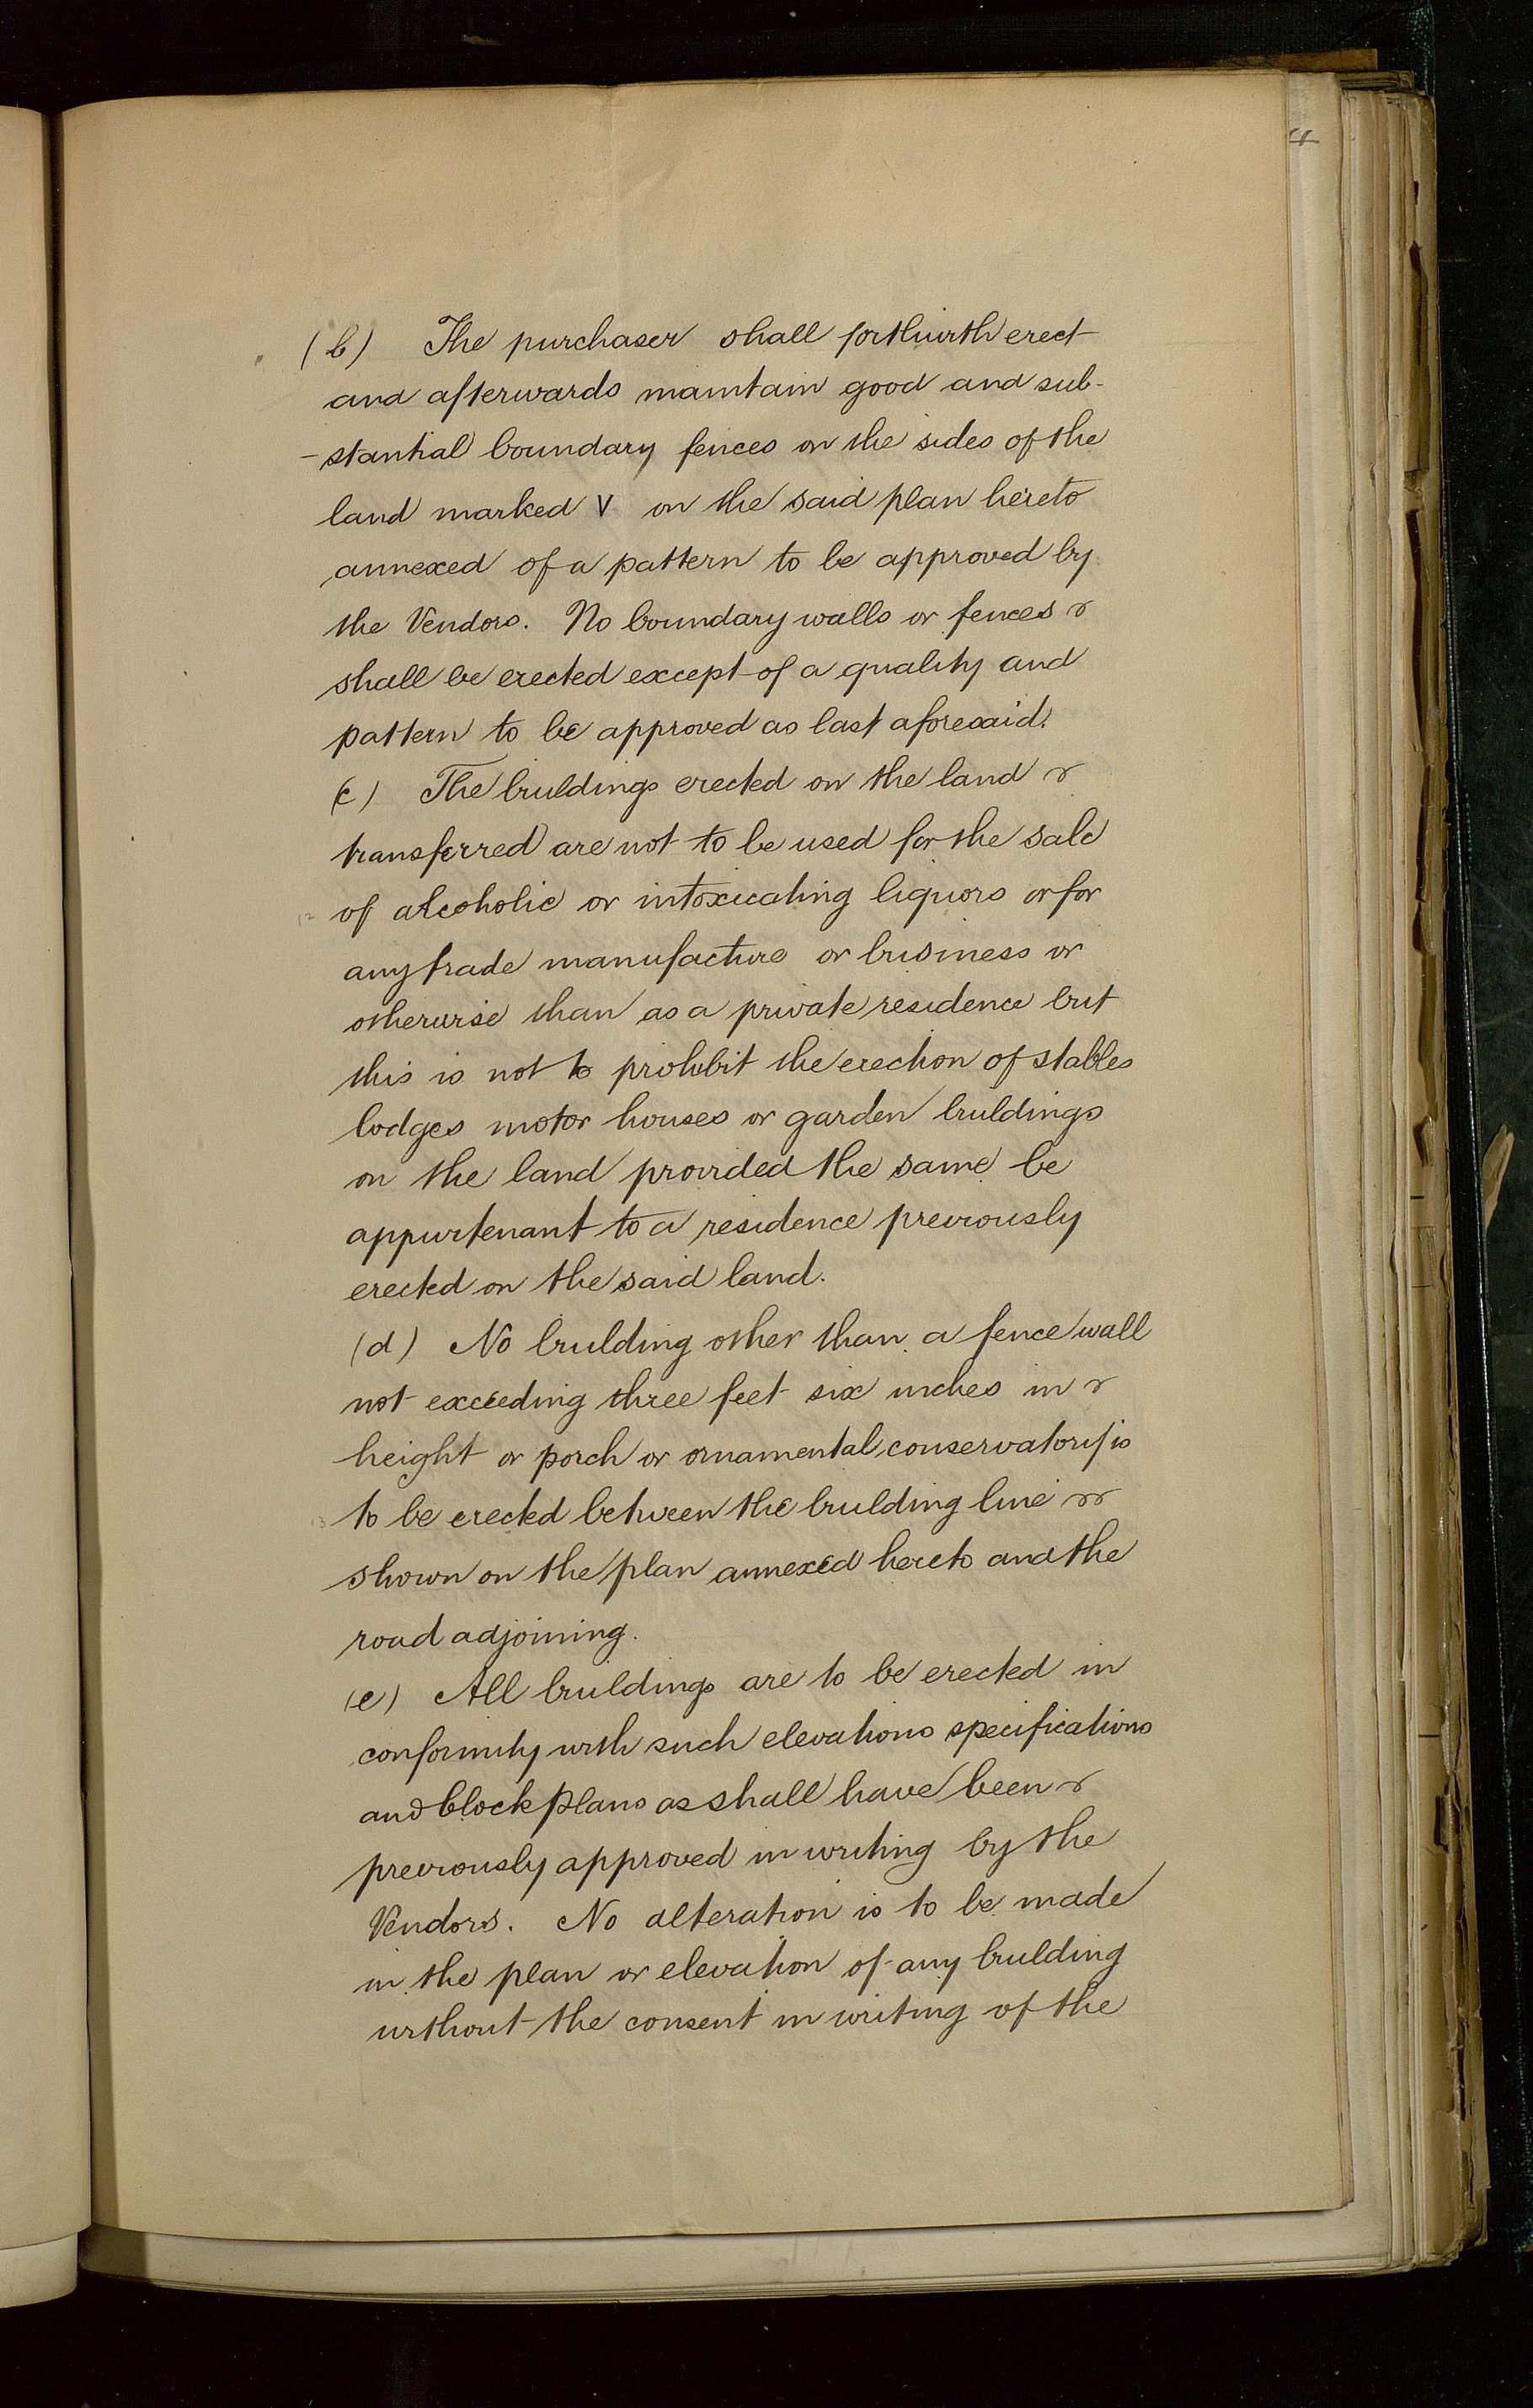 (b) The purchaser shall forthwith erect
and afterwards maintain good and sub-
-stantial boundary fences on the sides of the
land marked V on the said plan hereto
annexed of a pattern to be approved by
the Vendors. No boundary walls or fences
shall be erected except of a quality and
pattern to be approved as last aforesaid.
(c) The buildings erected on the land
transferred are not to be used for the sale
of alcoholic or intoxicating liquors or for
any trade manufacture or business or
otherwise than as a private residence but
this is not to prohibit the erection of stables
lodges motor houses or garden buildings
on the land provided the same be
appurtenant to a residence previously
erected on the said land.
(d) No building other than a fence wall
not exceeding three feet six inches in
height or porch or ornamental conservatory is
to be erected between the building line
shown on the plan annexed hereto and the
road adjoining.
(e) All buildings are to be erected in
conformity with such elevations specifications
and block plans as shall have been
previously approved in writing by the
Vendors. No alteration is to be made
in the plan or elevation of any building
without the consent in writing of the